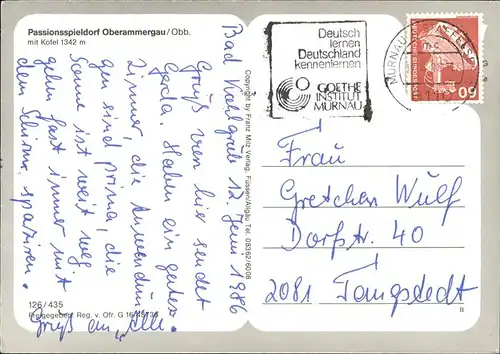 Passionsspieldorf Oberammergau/Obb.
mit Kofel 1342 m
Bad Kohlgrub 12. Juni 1986
Gruß von hier sendet
Gerda. Haben ein gutes
Zimmer, die Anwendun
gen sind prima, die
Sonne ist weit weg
gehn fast immer mit
dem Schirm spazieren.
Gruß an „Alle.
126/435
Freigegeben: Reg. v. Ofr. G 16
Copyright by Franz Milz Verlag, Füssen/Allgäu Tel. 08362/6008
Deutsch
lernen
Deutschland
kennenlernen
GOETHE
INSTITUT
MURNAU
MURNAU
DEUTSCHE BUNDESPOST
60
Frau
Gretchen Wulf
Dorfstr. 40
2081 Tangstedt
B